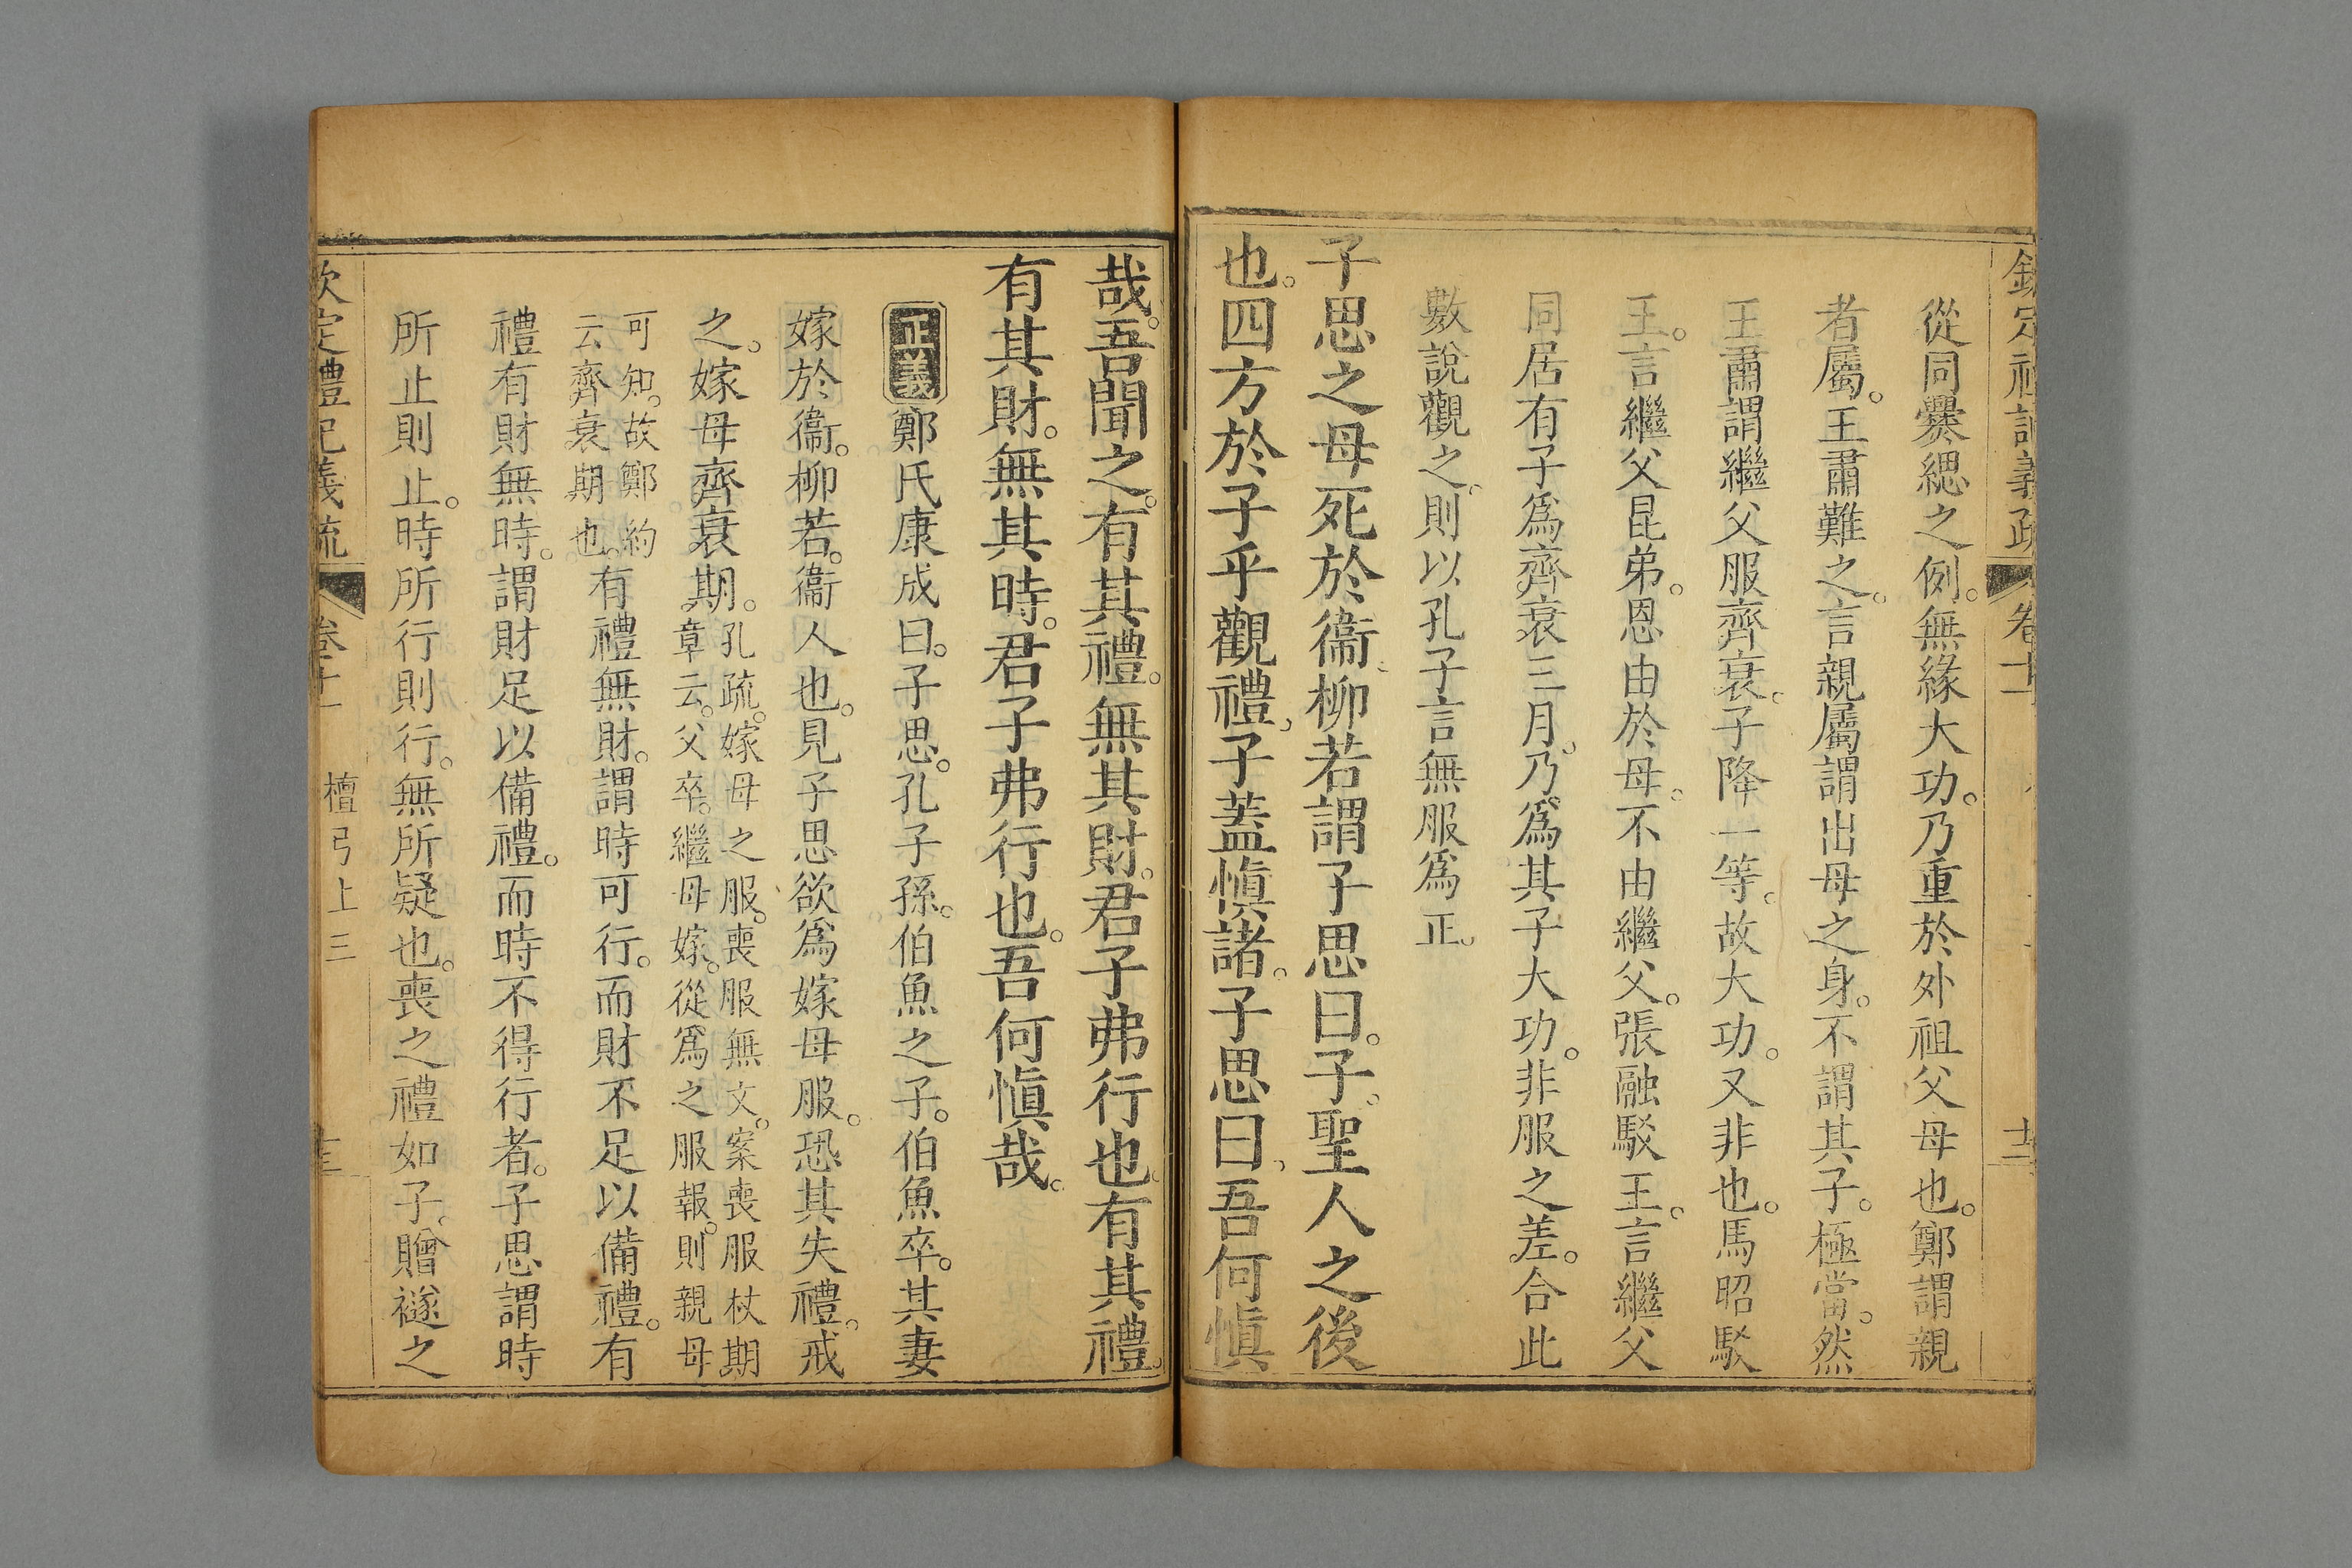 欽定禮記義疏 卷十一
從同爨緦之例。無緣大功。乃重於外祖父母也。鄭謂親
者屬。王肅難之。言親屬謂出母之身。不謂其子。極當。然
王肅謂繼父服齊衰。子降一等。故大功。又非也。馬昭駁
王。言繼父昆弟。恩由於母。不由繼父。張融駁王。言繼父
同居有子爲齊衰三月。乃爲其子大功。非服之差。合此
數說觀之。則以孔子言無服爲正。
子思之母死於衞。柳若謂子思曰。子。聖人之後
也。四方於子乎觀禮。子蓋愼諸。子思曰。吾何愼
哉。吾聞之。有其禮。無其財。君子弗行也。有其禮。
有其財。無其時。君子弗行也。吾何愼哉。
正義 鄭氏康成曰。子思。孔子孫。伯魚之子。伯魚卒。其妻
嫁於衞。柳若。衞人也。見子思欲爲嫁母服。恐其失禮。戒
之。嫁母齊衰期。孔疏。嫁母之服。喪服無文。案喪服杖期
章云。父卒。繼母嫁。從爲之服報。則親母
可知。故鄭約
云齊衰期也。有禮無財。謂時可行。而財不足以備禮。有
禮有財無時。謂財足以備禮。而時不得行者。子思謂時
所止則止。時所行則行。無所疑也。喪之禮如子。贈襚之
欽定禮記義疏 卷十一 檀弓上三